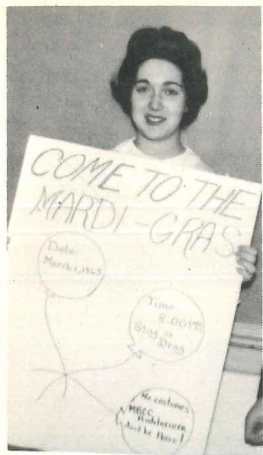 COME TO THE
MARDI-GRAS
Date:
March 1, 1963
Time:
8:00 PM
or
Stag Drag
No costumes
MBCC
Auditorium
Just be there!